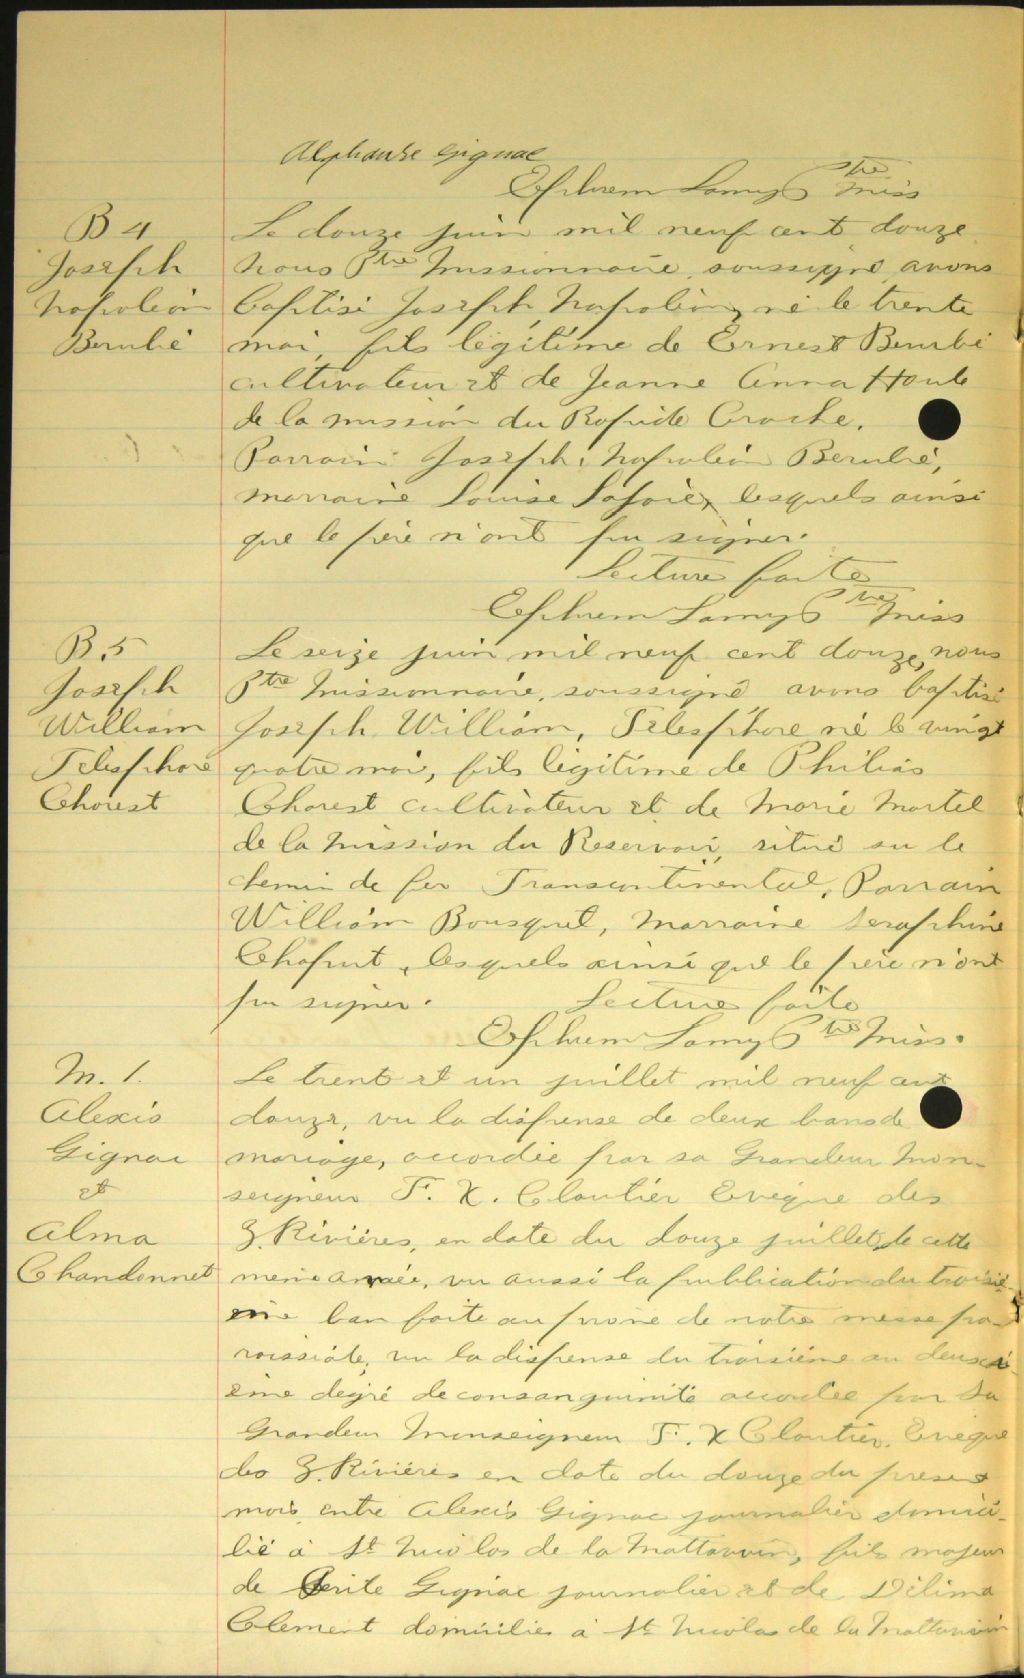 Alphonse Gignac
Ephrem Lamy Ptre miss
B 4
Joseph
Napoléon
Berubé
Le douze juin mil neuf cent douze
nous Ptre missionnaire soussigné avons
baptisé Joseph, Napoléon, né le trente
mai, fils légitime de Ernest Berubé
cultivateur et de Jeanne Anna Houle
de la mission du Rapide Croche.
Parrain Joseph, Napoléon Berubé,
marraine Louise Lajoie, lesquels ainsi
que le père n'ont pu signer.
Lecture faite
Ephrem Lamy Ptre miss
B. 5
Joseph
William
Télesphore
Chorest
Le seize juin mil neuf cent douze, nous
Ptre missionnaire soussigné avons baptisé
Joseph, William, Télesphore né le vingt
quatre mai, fils légitime de Philias
Chorest cultivateur et de Marie Martel
de la Mission du Reservoir, situé su le
chemin de fer Transcontinental. Parrain
William Bousquet, marraine Seraphine
Chaput, lesquels ainsi que le père n'ont
pu signer. Lecture faite
Ephrem Lamy Ptre Miss.
M. 1.
Alexis
Gignac
et
Alma
Chandonnet
Le trent et un juillet mil neuf cent
douze, vu la dispense de deux bans de
mariage, accordée par sa Grandeur Mon-
seigneur F. X. Cloutier Evêque des
3. Rivières, en date du douze juillet, de cette
même année, vu aussi la publication du troisiè-
me ban faite au prône de notre messe pa-
roissiale, vu la dispense du troisième au deuxi-
ème degré de consanguinité accordée par Sa
Grandeur Monseigneur F. X Cloutier. Evêque
des 3. Rivières en date du douze du présent
mois, entre Alexis Gignac journalier domici-
lié à St Nicolas de la Mattawin, fils majeur
de Gignac journalier et de Délima
Clement domiciliés à St Nicolas de la Mattawin